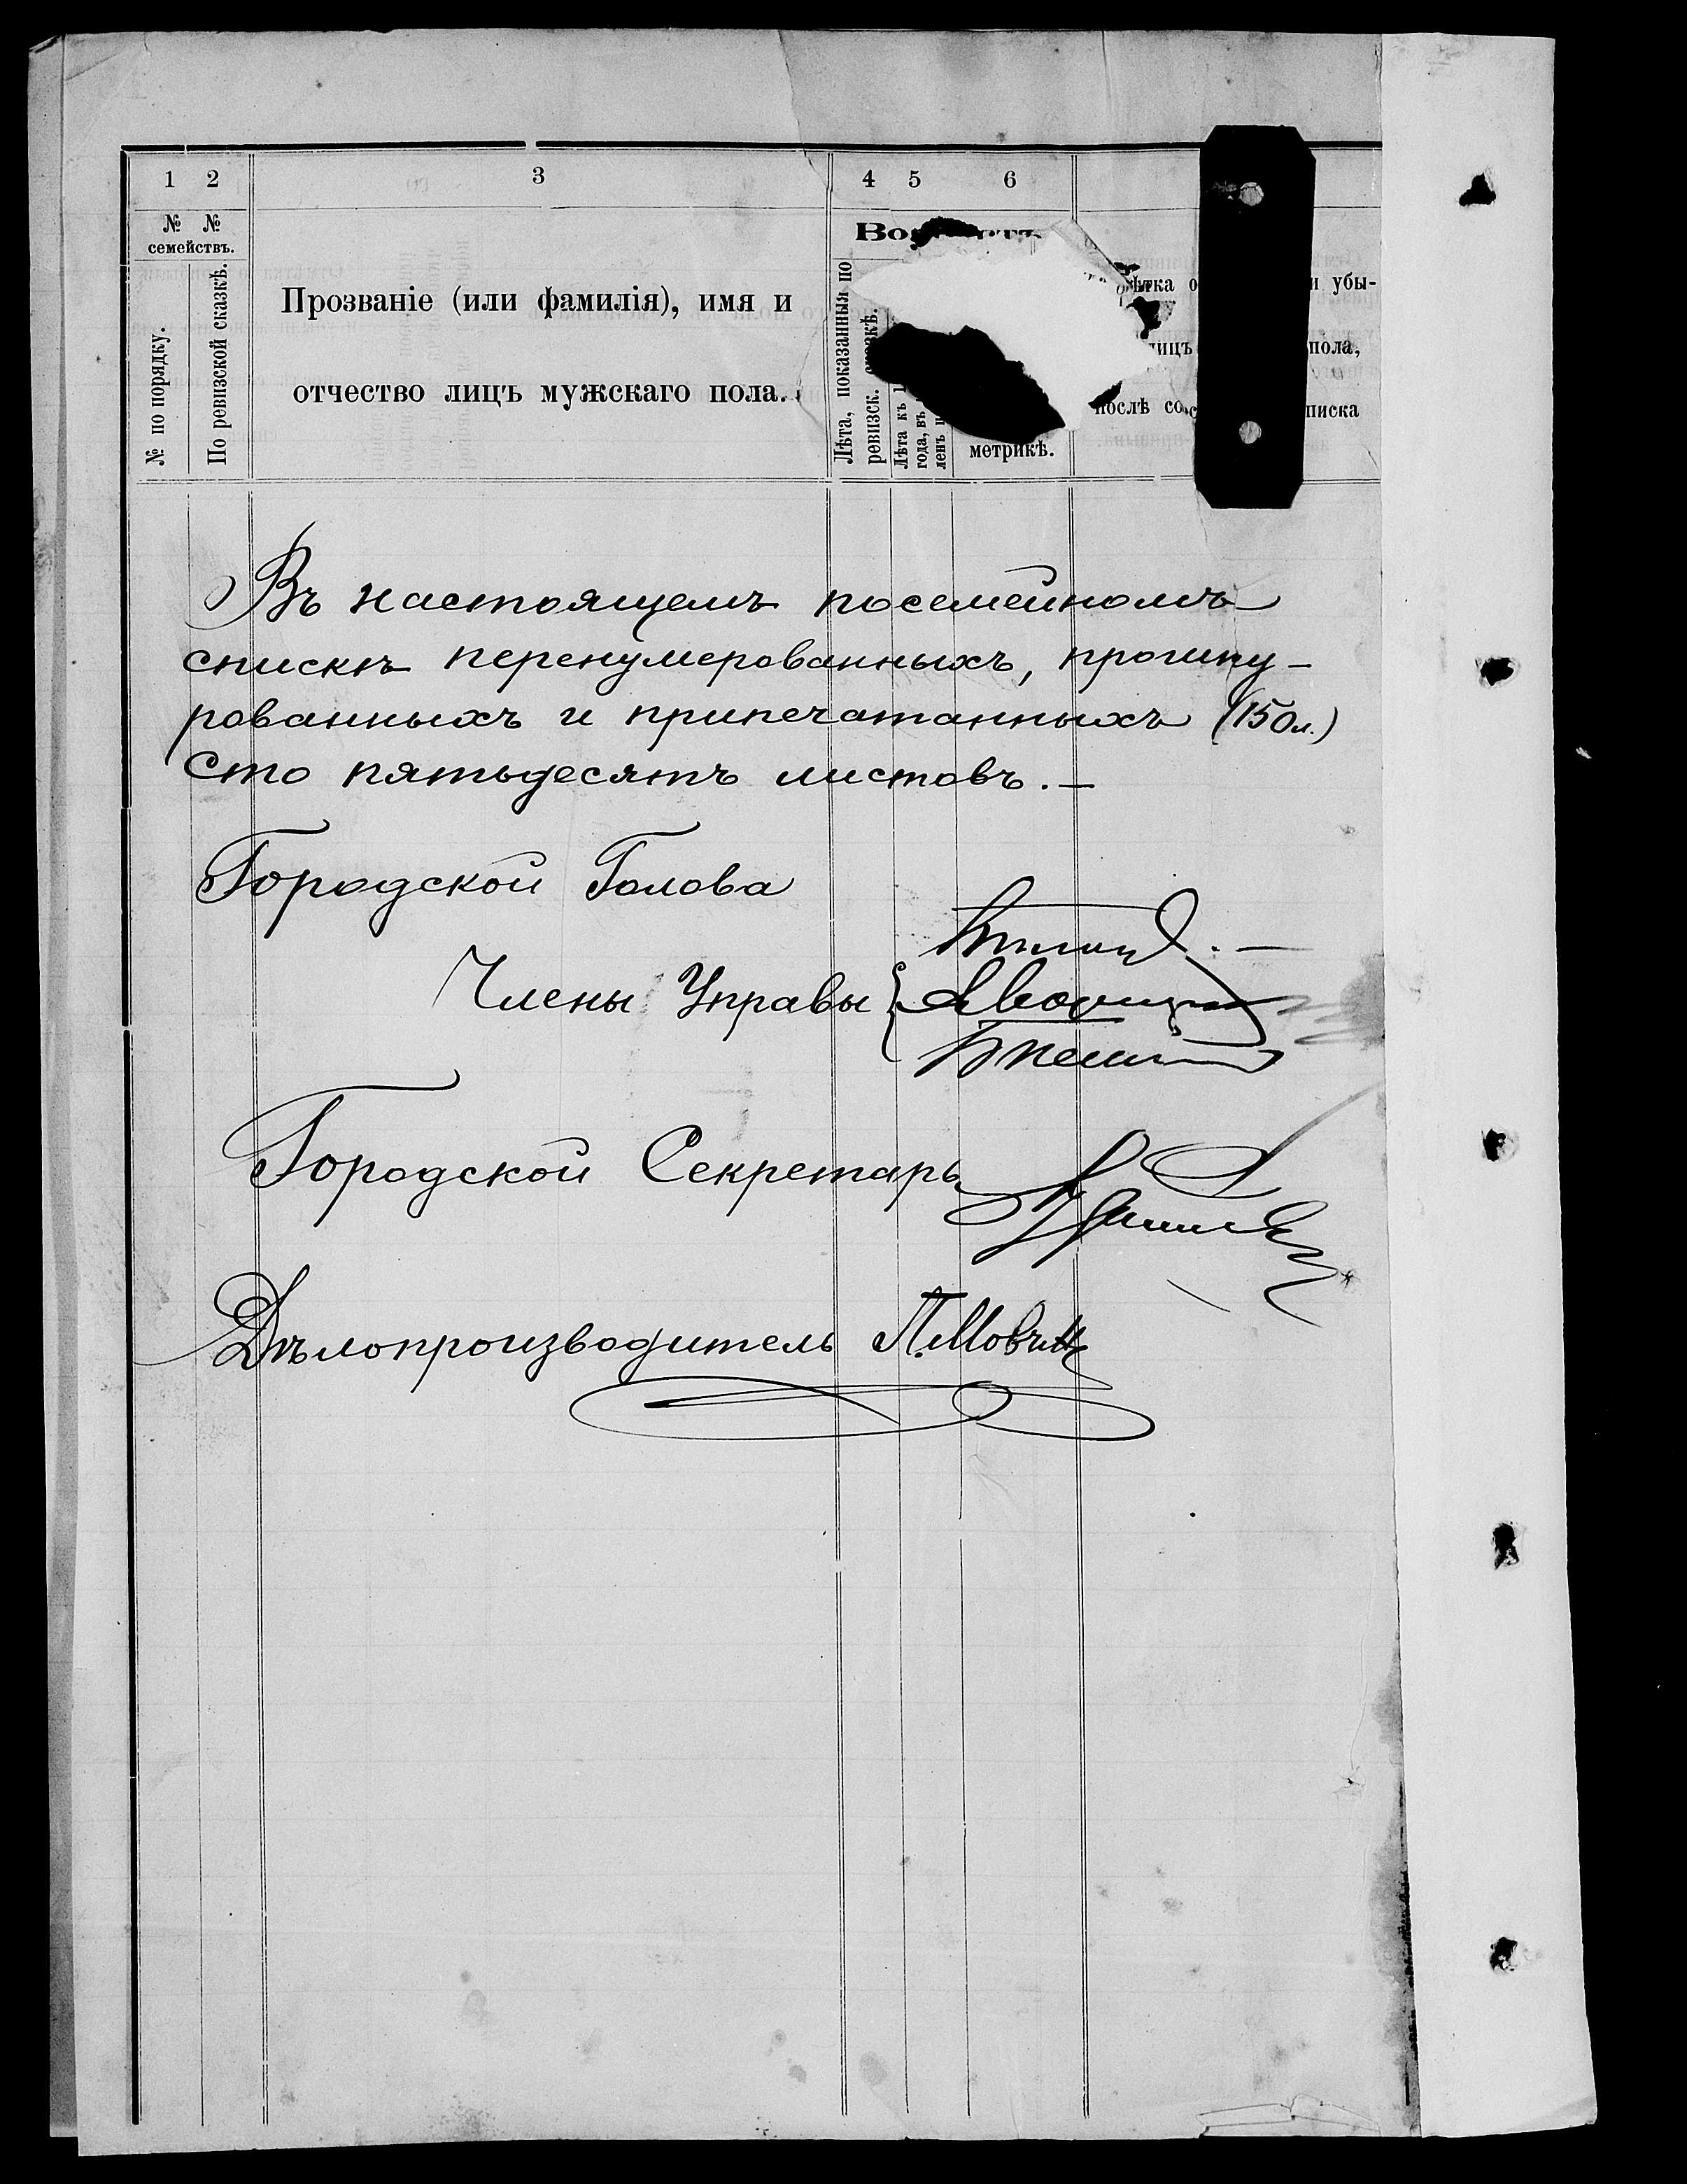 1 2 3 4 5 6
№ № семействъ.
№ по порядку.
По ревизской сказкѣ.
Прозваніе (или фамилія), имя и
отчество лицъ мужскаго пола.
Лѣта, показанныя по
ревизск.
Лѣта къ
года, въ
метрикѣ.
и убы-
лицъ пола,
послѣ
писка
Въ настоящемъ посемейномъ
спискѣ перенумерованныхъ, прошну-
рованныхъ и припечатанныхъ (150 л.)
сто пятьдесятъ листовъ.—
Городской Голова
Члены Управы
Городской Секретарь
Дѣлопроизводитель П.